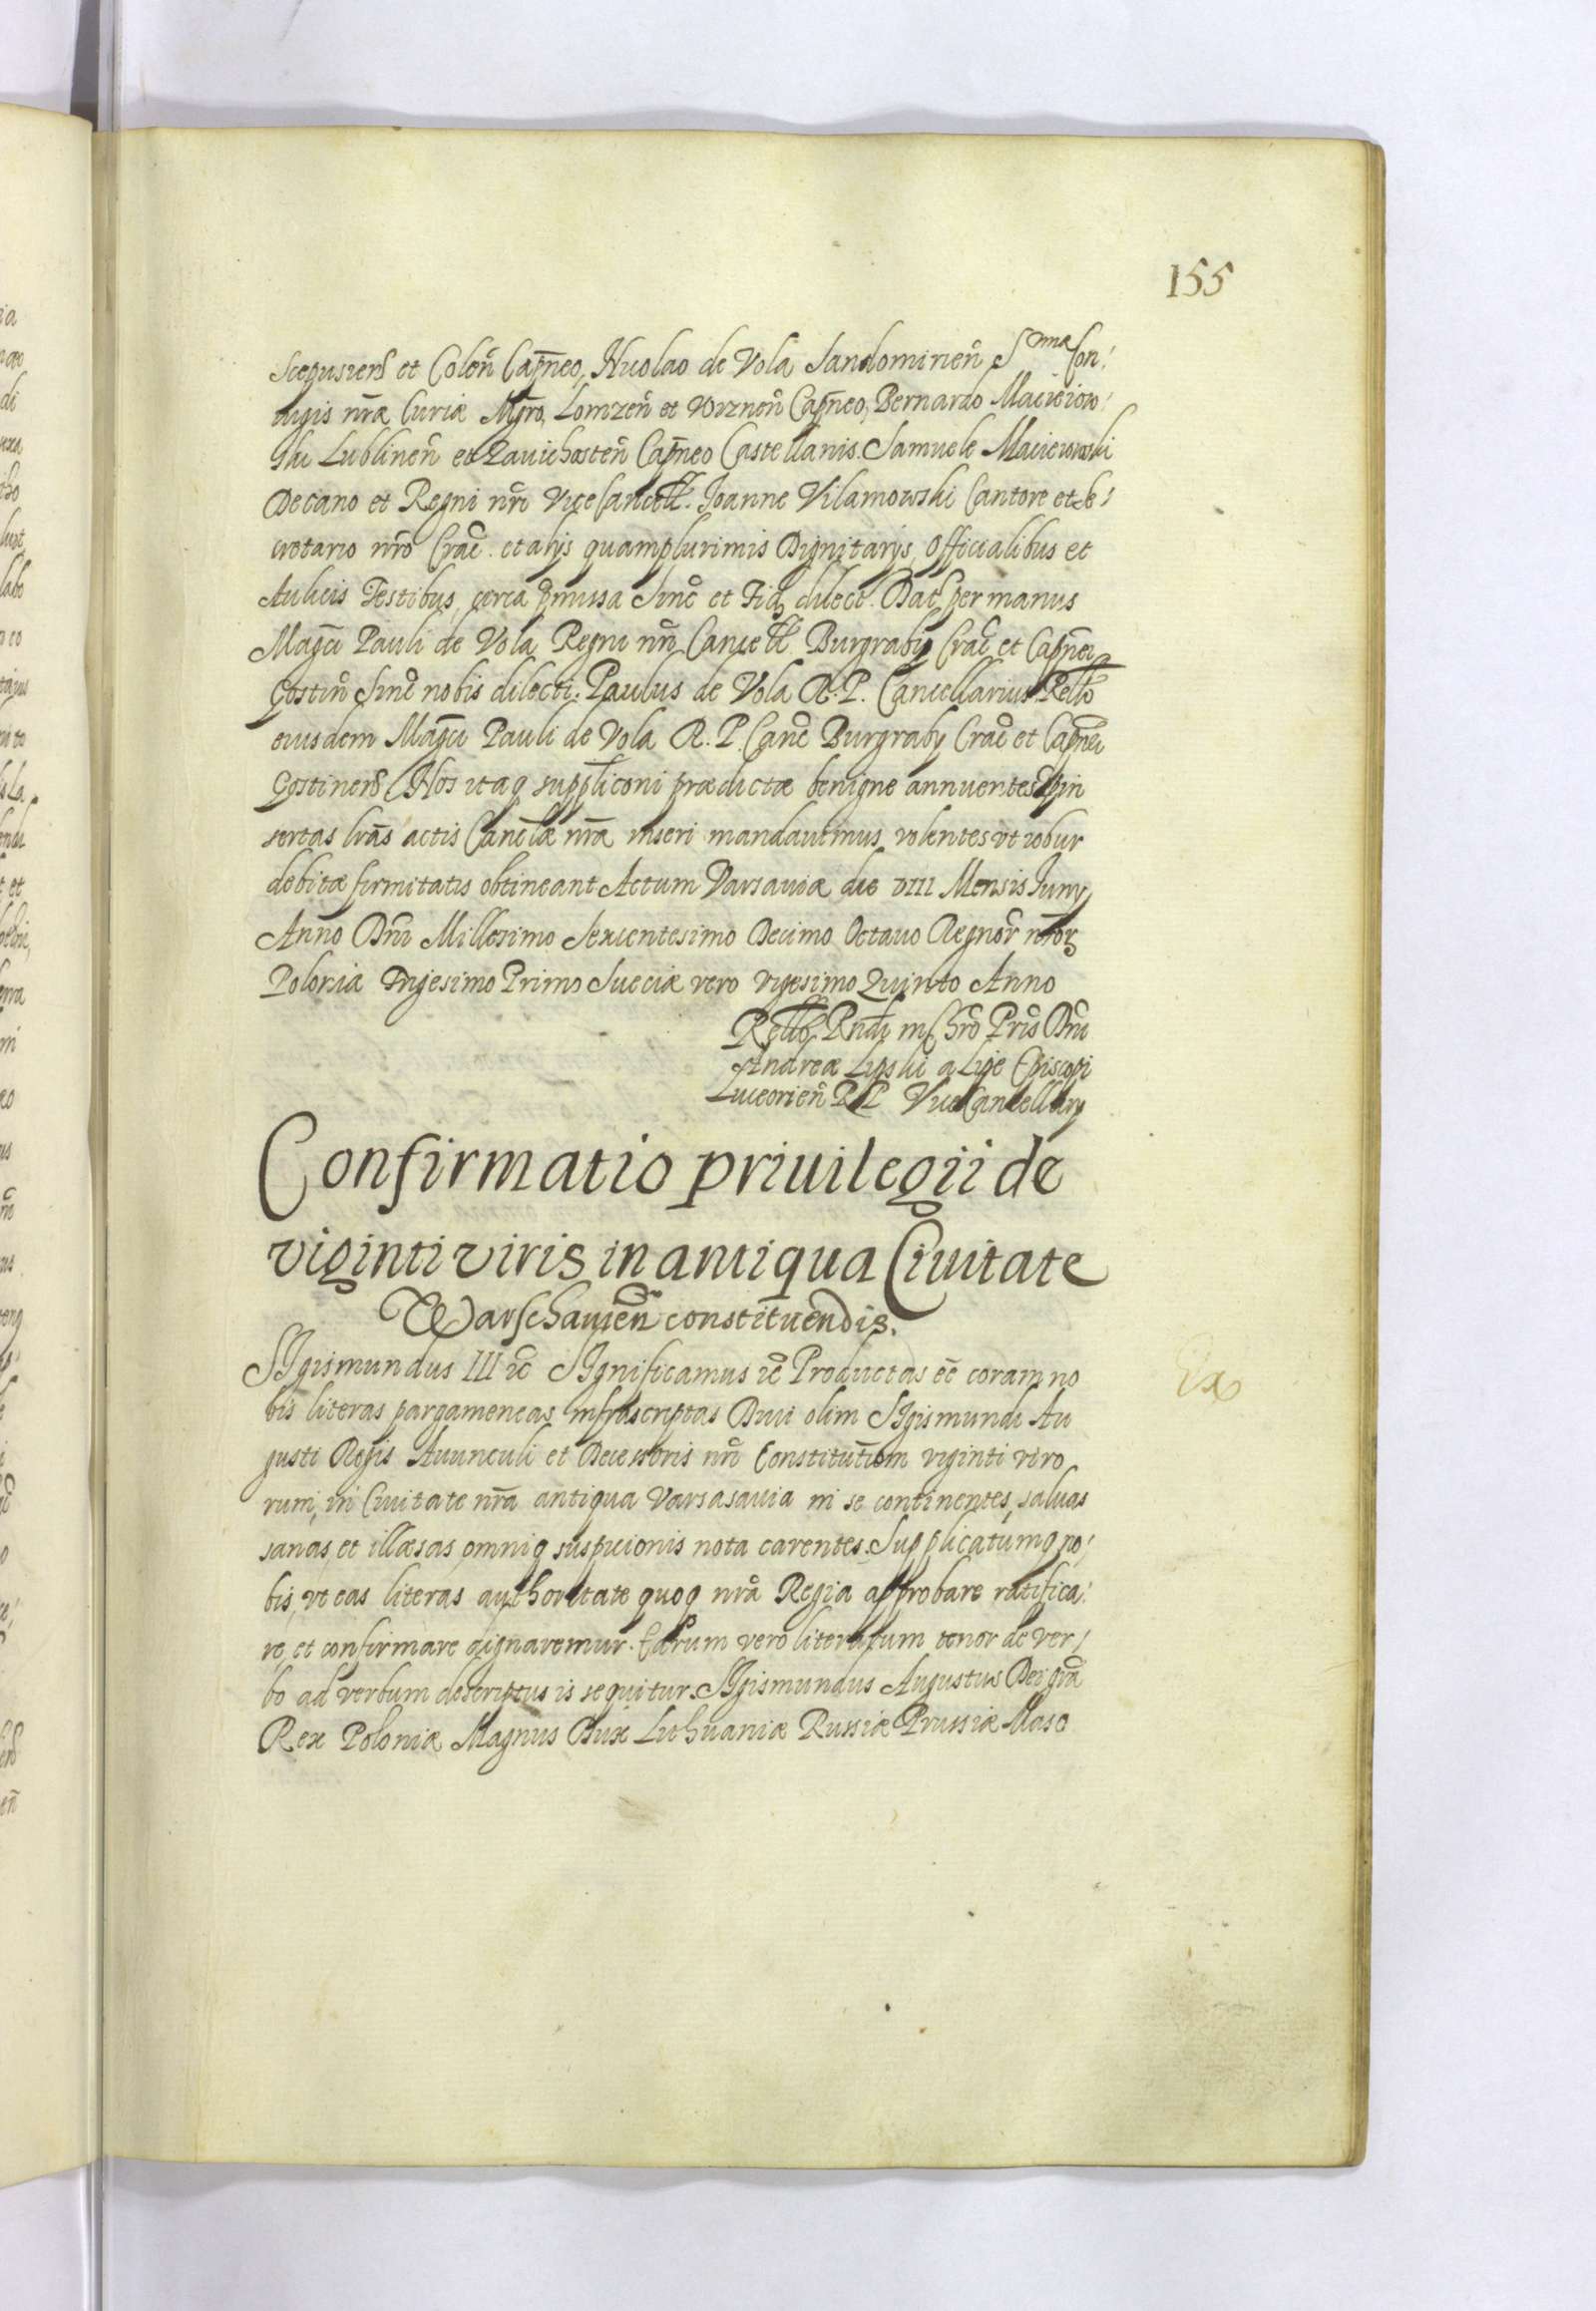 155
Scepusien̄ et Colen̄ Capn̄eo, Nicolao de Vola Sandomirien̄ Smæ Con:
iugis nr̄æ Curiæ Mgr̄o, Lomzen̄ et Viznen̄ Capn̄eo, Bernardo Macieiow:
ski Lublinen̄ et Zauichosten̄ Capn̄eo Castellanis. Samuele Macieiowski
Decano et Regni nr̄i ViceCancell. Joanne Vilamowski Cantore et Se:
cretario nr̄o Crac̄. et alijs quamplurimis Dignitarijs, Officialibus et
Aulicis Testibus, circa p̄missa Sinc̄ et Fid, dilect. Dat̄ per manus
Magc̄i Pauli de Vola Regni nr̄i Cancell. Burgrabij Crac̄ et Capn̄ei
Gostin̄ Sinc̄ nobis dilecti. Paulus de Vola R. P. Cancellarius. Rel̄lo
eiusdem Magc̄i Pauli de Vola R. P. Canc̄ Burgrabij Crac̄ et Capn̄ei
Gostinen̄ Nos itaq supp̄liconi prædictæ benigne annuentes p̄in
sertas lrās actis Canc̄læ nr̄æ inseri mandauimus, volentes vt robur
debitæ firmitatis obtineant Actum Varsauiæ die VIII Mensis Junij
Anno Dn̄i Millesimo Sexcentesimo Decimo Octauo Regnor̄ nr̄or
Poloniæ Trigesimo Primo Sueciæ vero vigesimo Quinto Anno
Rel̄lo Rndi in Chr̄o Pris̄ Dn̄i
Andreæ Lipski a Lipe Episcopi
Luceorien̄ R P ViceCancellarij
Confirmatio priuilegii de
viginti viris in antiqua Ciuitate
Warschauien̄ constituendis.
SIgismundus III ec̄ SIgnificamus ec̄ Productas ec̄ coram no
bis literas pargameneas infrascriptas Diui olim SIgismundi Au
gusti Regis Auunculi et Decessoris nr̄i Constitutiōm viginti viro
rum, in Ciuitate nr̄a antiqua Varsasauia in se continentes, saluas
sanas, et illæsas omniq suspicionis nota carentes. Supplicatumq no:
bis, vt eas literas authoritate quoq nr̄a Regia approbare ratifica:
re, et confirmare dignaremur. Earum vero literarum tenor de ver:
bo ad verbum descriptus is sequitur. SIgismundus Augustus Dei grā
Rex Poloniæ Magnus Dux Lithuaniæ Russiæ Prussiæ Maso
Ex